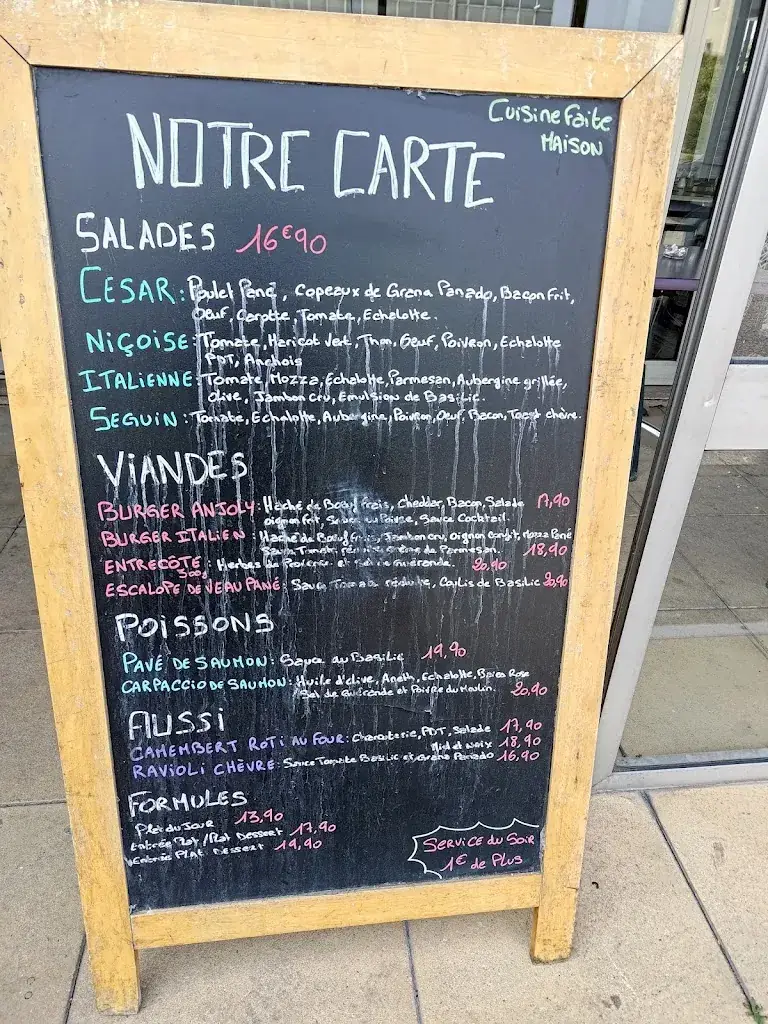 Cuisine Faite
MAISON
NOTRE CARTE
SALADES 16€90
CESAR : Poulet Pané, Copeaux de Grana Panado, Bacon Frit,
Oeuf, Carotte, Tomate, Echalotte.
NIÇOISE : Tomate, Haricot Vert, Thon, Oeuf, Poivron, Echalotte
PDT, Anchois
ITALIENNE : Tomate, Mozza, Echalotte, Parmesan, Aubergine grillée,
Olive, Jambon Cru, Emulsion de Basilic.
SEGUIN : Tomate, Echalotte, Aubergine, Poivron, Oeuf, Bacon, Toast chèvre.
VIANDES
BURGER ANJOLY : Haché de Boeuf frais, Cheddar, Bacon, Salade 17,90
oignon frit, Sauce au Poivre, Sauce Cocktail.
BURGER ITALIEN : Haché de Boeuf frais, Jambon cru, Oignon Confit, Mozza Pané
Sauce Tomate, Crème de Parmesan. 18,90
ENTRECÔTE : Herbes de Provence et Sel de Guérande. 20,90
300g
ESCALOPE DE VEAU PANÉ : Sauce Tomate réduite, Coulis de Basilic 20,90
POISSONS
PAVÉ DE SAUMON : Sauce au Basilic 19,90
CARPACCIO DE SAUMON : Huile d'olive, Aneth, Echalotte, Baies Rose
Sel de Guérande et Poivre du Moulin. 20,90
AUSSI
CAMEMBERT ROTI AU FOUR : Charcuterie, PDT, Salade 17,90
Miel et Noix 18,90
RAVIOLI CHÈVRE : Sauce Tomate Basilic et Grana Panado 16,90
FORMULES
Plat du Jour 13,90
Entrée Plat / Plat Dessert 17,90
Entrée Plat Dessert 19,90
SERVICE DU SOIR
1€ de PLUS